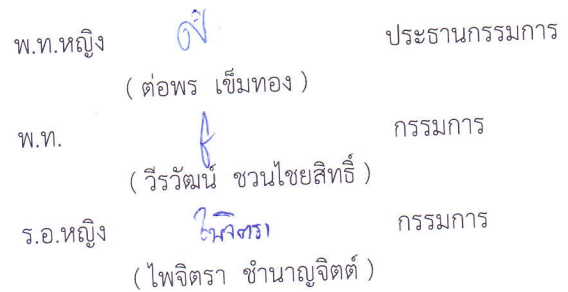 พ.ท.หญิง ประธานกรรมการ
( ต่อพร เข็มทอง )
พ.ท. กรรมการ
( วีรวัฒน์ ชวนไชยสิทธิ์ )
ร.อ.หญิง ไพจิตรา กรรมการ
( ไพจิตรา ชำนาญจิตต์ )